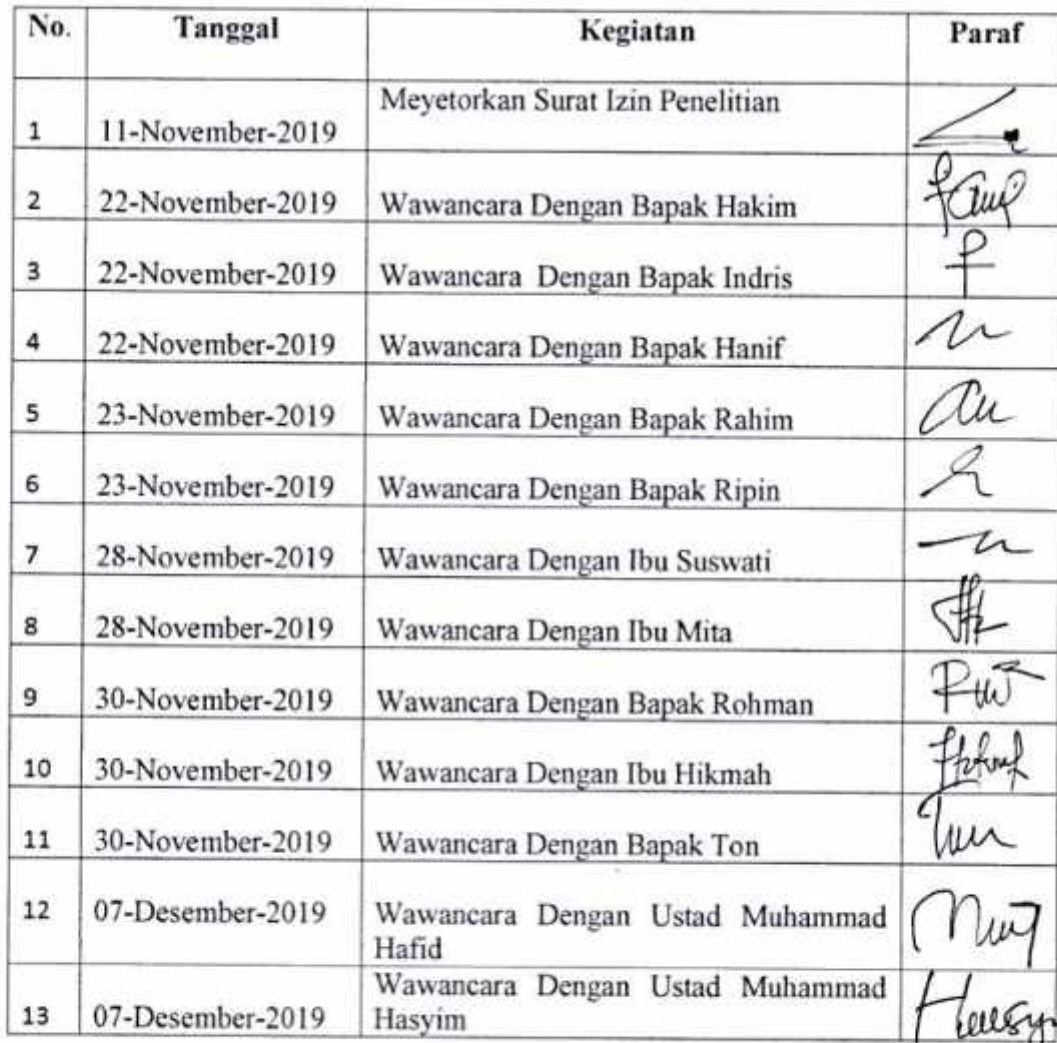 No. Tanggal Kegiatan Paraf
1 11-November-2019 Meyetorkan Surat Izin Penelitian
2 22-November-2019 Wawancara Dengan Bapak Hakim
3 22-November-2019 Wawancara Dengan Bapak Indris
4 22-November-2019 Wawancara Dengan Bapak Hanif
5 23-November-2019 Wawancara Dengan Bapak Rahim
6 23-November-2019 Wawancara Dengan Bapak Ripin
7 28-November-2019 Wawancara Dengan Ibu Suswati
8 28-November-2019 Wawancara Dengan Ibu Mita
9 30-November-2019 Wawancara Dengan Bapak Rohman
10 30-November-2019 Wawancara Dengan Ibu Hikmah
11 30-November-2019 Wawancara Dengan Bapak Ton
12 07-Desember-2019 Wawancara Dengan Ustad Muhammad
Hafid
13 07-Desember-2019 Wawancara Dengan Ustad Muhammad
Hasyim